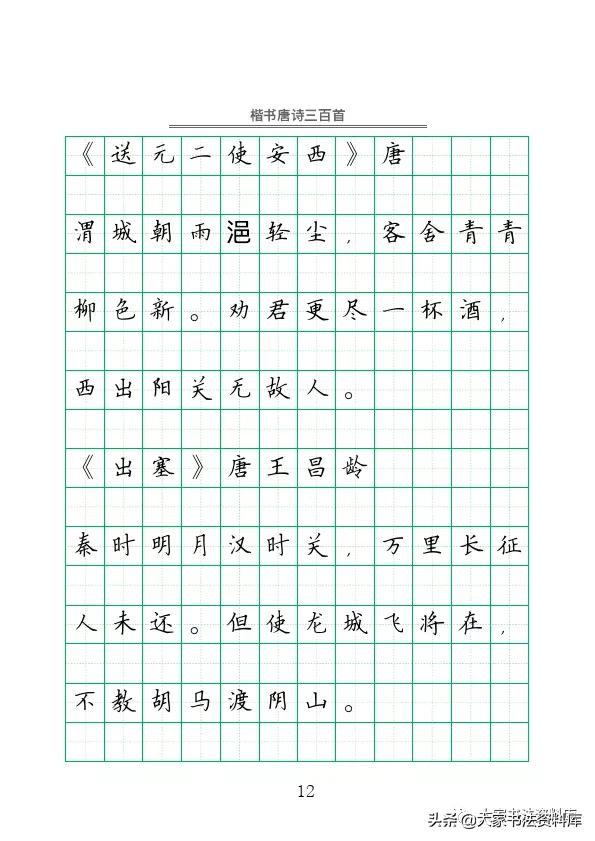 楷书唐诗三百首
《送元二使安西》唐
渭城朝雨浥轻尘，客舍青青
柳色新。劝君更尽一杯酒，
西出阳关无故人。
《出塞》唐王昌龄
秦时明月汉时关，万里长征
人未还。但使龙城飞将在，
不教胡马渡阴山。
12
大家书法资料库
头条@大家书法资料库